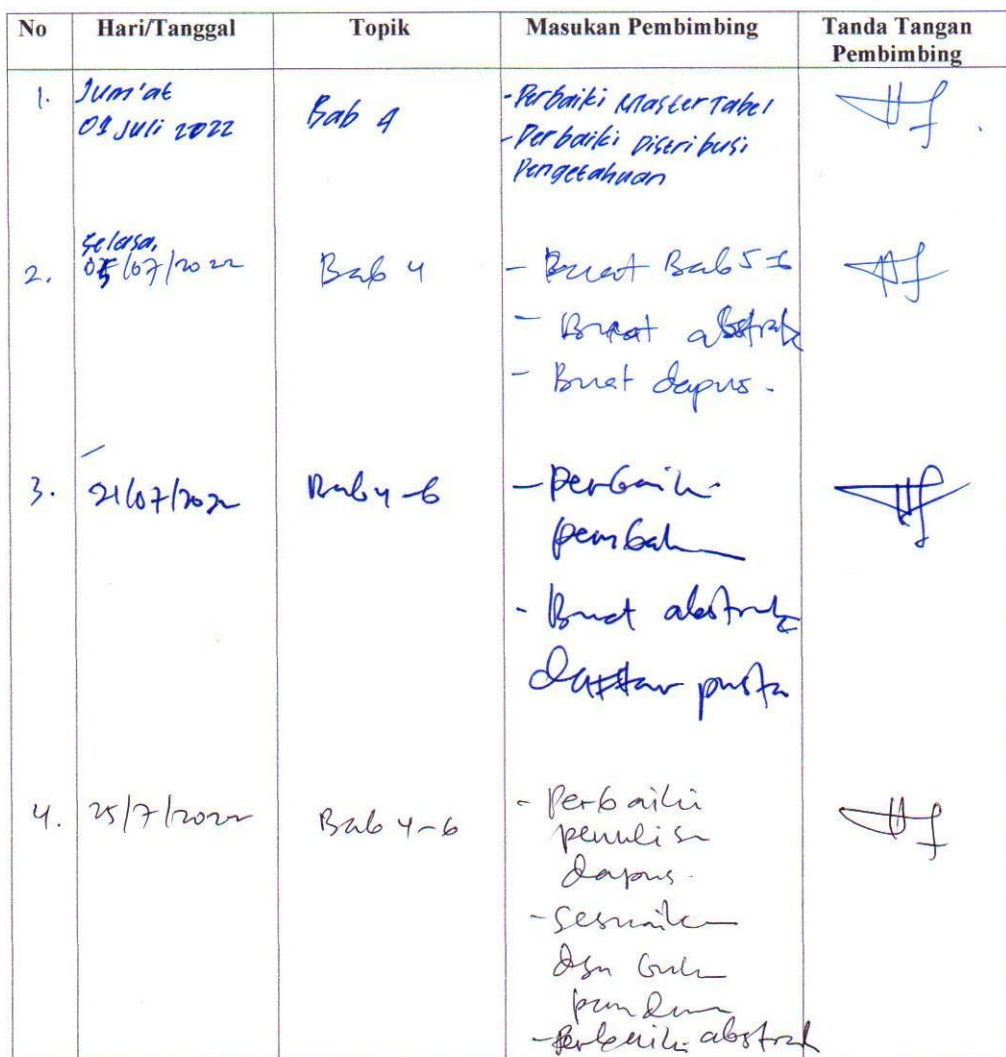 No Hari/Tanggal Topik Masukan Pembimbing Tanda Tangan
Pembimbing
1. Jum'at Bab 4 - Perbaiki Master Tabel
01 Juli 2022 - Perbaiki Distribusi
Pengetahuan
2. Selasa, Bab 4 - Buat Bab 5-6
05/07/2022
- Buat abstrak
- Buat dapus.
3. 21/07/2022 Bab 4-6 - perbaiki
- Buat abstrak
daftar pusta
4. 25/7/2022 Bab 4-6 - Perbaiki
penulisa
dapus.
- Sesuaika
dgn buku
- Perbaiki abstrak